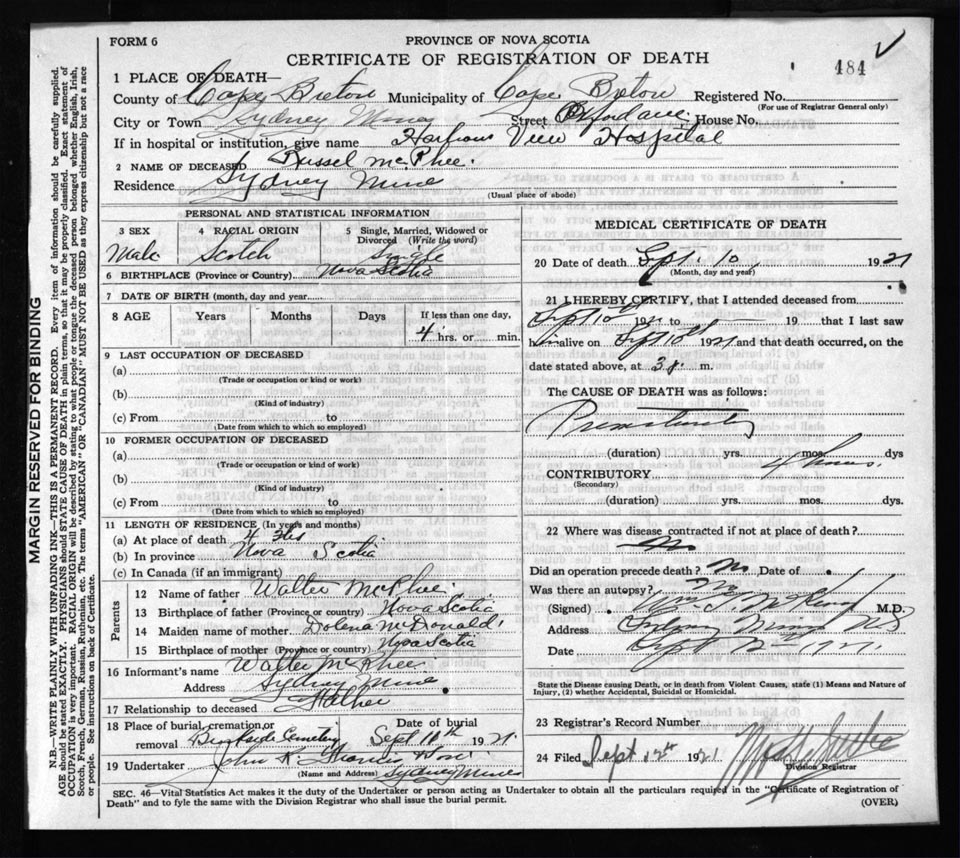 FORM 6
PROVINCE OF NOVA SCOTIA
CERTIFICATE OF REGISTRATION OF DEATH
484
1 PLACE OF DEATH—
County of Cape Breton Municipality of Cape Breton Registered No.
(For use of Registrar General only)
City or Town Sydney Mines Street House No.
If in hospital or institution, give name Harbour View Hospital
2 NAME OF DECEASED Russel McPhee.
Residence Sydney Mine
(Usual place of abode)
PERSONAL AND STATISTICAL INFORMATION
3 SEX 4 RACIAL ORIGIN 5 Single, Married, Widowed or Divorced (Write the word)
Male Scotch Single
6 BIRTHPLACE (Province or Country) Nova Scotia
7 DATE OF BIRTH (month, day and year)
8 AGE Years Months Days If less than one day,
4 hrs. or min.
9 LAST OCCUPATION OF DECEASED
(a)
(Trade or occupation or kind or work)
(b)
(Kind of industry)
(c) From to
(Date from which to which so employed)
10 FORMER OCCUPATION OF DECEASED
(a)
(Trade or occupation or kind of work)
(b)
(Kind of industry)
(c) From to
(Date from which to which so employed)
11 LENGTH OF RESIDENCE (In years and months)
(a) At place of death 4
(b) In province Nova Scotia
(c) In Canada (if an immigrant)
Parents
12 Name of father Walter McPhee
13 Birthplace of father (Province or country) Nova Scotia
14 Maiden name of mother Dolena McDonald
15 Birthplace of mother (Province or country) Nova Scotia
16 Informant's name Walter McPhee
Address Sydney Mine
17 Relationship to deceased Father
18 Place of burial, cremation, or removal Cemetery Date of burial Sept 1921
19 Undertaker John K.
(Name and Address) Sydney Mines
MEDICAL CERTIFICATE OF DEATH
20 Date of death Sept. 10, 1921
(Month, day and year)
21 I HEREBY CERTIFY, that I attended deceased from
Sept 10th 1921 to — 19 that I last saw
him alive on Sept 10th 1921 and that death occurred, on the
date stated above, at 3 m.
The CAUSE OF DEATH was as follows:
Prematurity
(duration) yrs. mos. dys
4 hours.
CONTRIBUTORY
(Secondary)
(duration) yrs. mos. dys.
22 Where was disease contracted if not at place of death?
Did an operation precede death? No Date of
Was there an autopsy? No
(Signed) M.D.
Address Sydney Mines N.S.
Date Sept 12th 1921.
State the Disease causing Death, or in death from Violent Causes, state (1) Means and Nature of
Injury, (2) whether Accidental, Suicidal or Homicidal.
23 Registrar's Record Number
24 Filed Sept 12th 1921
Division Registrar
SEC. 46—Vital Statistics Act makes it the duty of the Undertaker or person acting as Undertaker to obtain all the particulars required in the "Certificate of Registration of
Death" and to fyle the same with the Division Registrar who shall issue the burial permit.
(OVER)
MARGIN RESERVED FOR BINDING
N.B.—WRITE PLAINLY WITH UNFADING INK—THIS IS A PERMANENT RECORD. Every item of information should be carefully supplied.
AGE should be stated EXACTLY. PHYSICIANS should STATE CAUSE OF DEATH in plain terms, so that it may be properly classified. Exact statement of
OCCUPATION is very important. RACIAL ORIGIN will be described by stating to what people or tongue the deceased person belonged whether English, Irish,
Scotch, French, German, Russian, Ruthenian, etc. The terms "AMERICAN" OR "CANADIAN" MUST NOT BE USED as they express citizenship but not a race
or people. See instructions on back of Certificate.